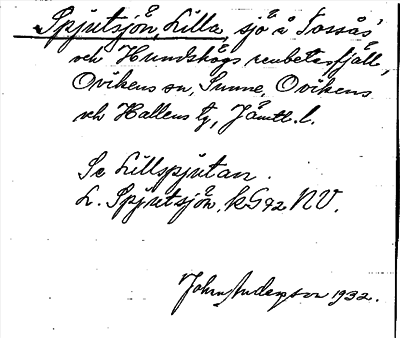 Spjutsjön, Lilla, sjö å Tossås'
och Hundshögs renbetesfjäll,
Ovikens sn, Sunne, Ovikens
och Hallens tg, Jämtl. l.
Se Lillspjutan.
L. Spjutsjön, kG92 NV.
John Anderson 1932.